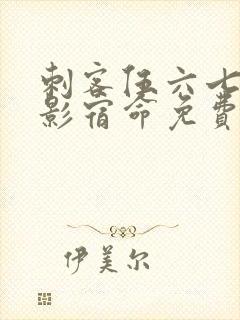 刺客伍六七
影宿命免费
伊美尔